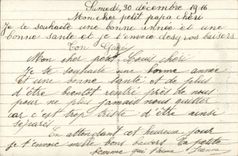 Samedi, 30 décembre 1916
Mon cher petit papa chéri
Je te souhaite une bonne année et une
bonne santé et je t'envoie des gros baisers
Ton
Mon cher petit chéri
Je te souhaite une bonne année
et une bonne santé et de plus
d'être bientôt rentré près de nous
pour ne plus jamais nous quitter
car c'est trop triste d'être ainsi
séparés
En attendant cet heureux jour
je t'envoie mille bons baisers. Ta petite
femme qui t'aime